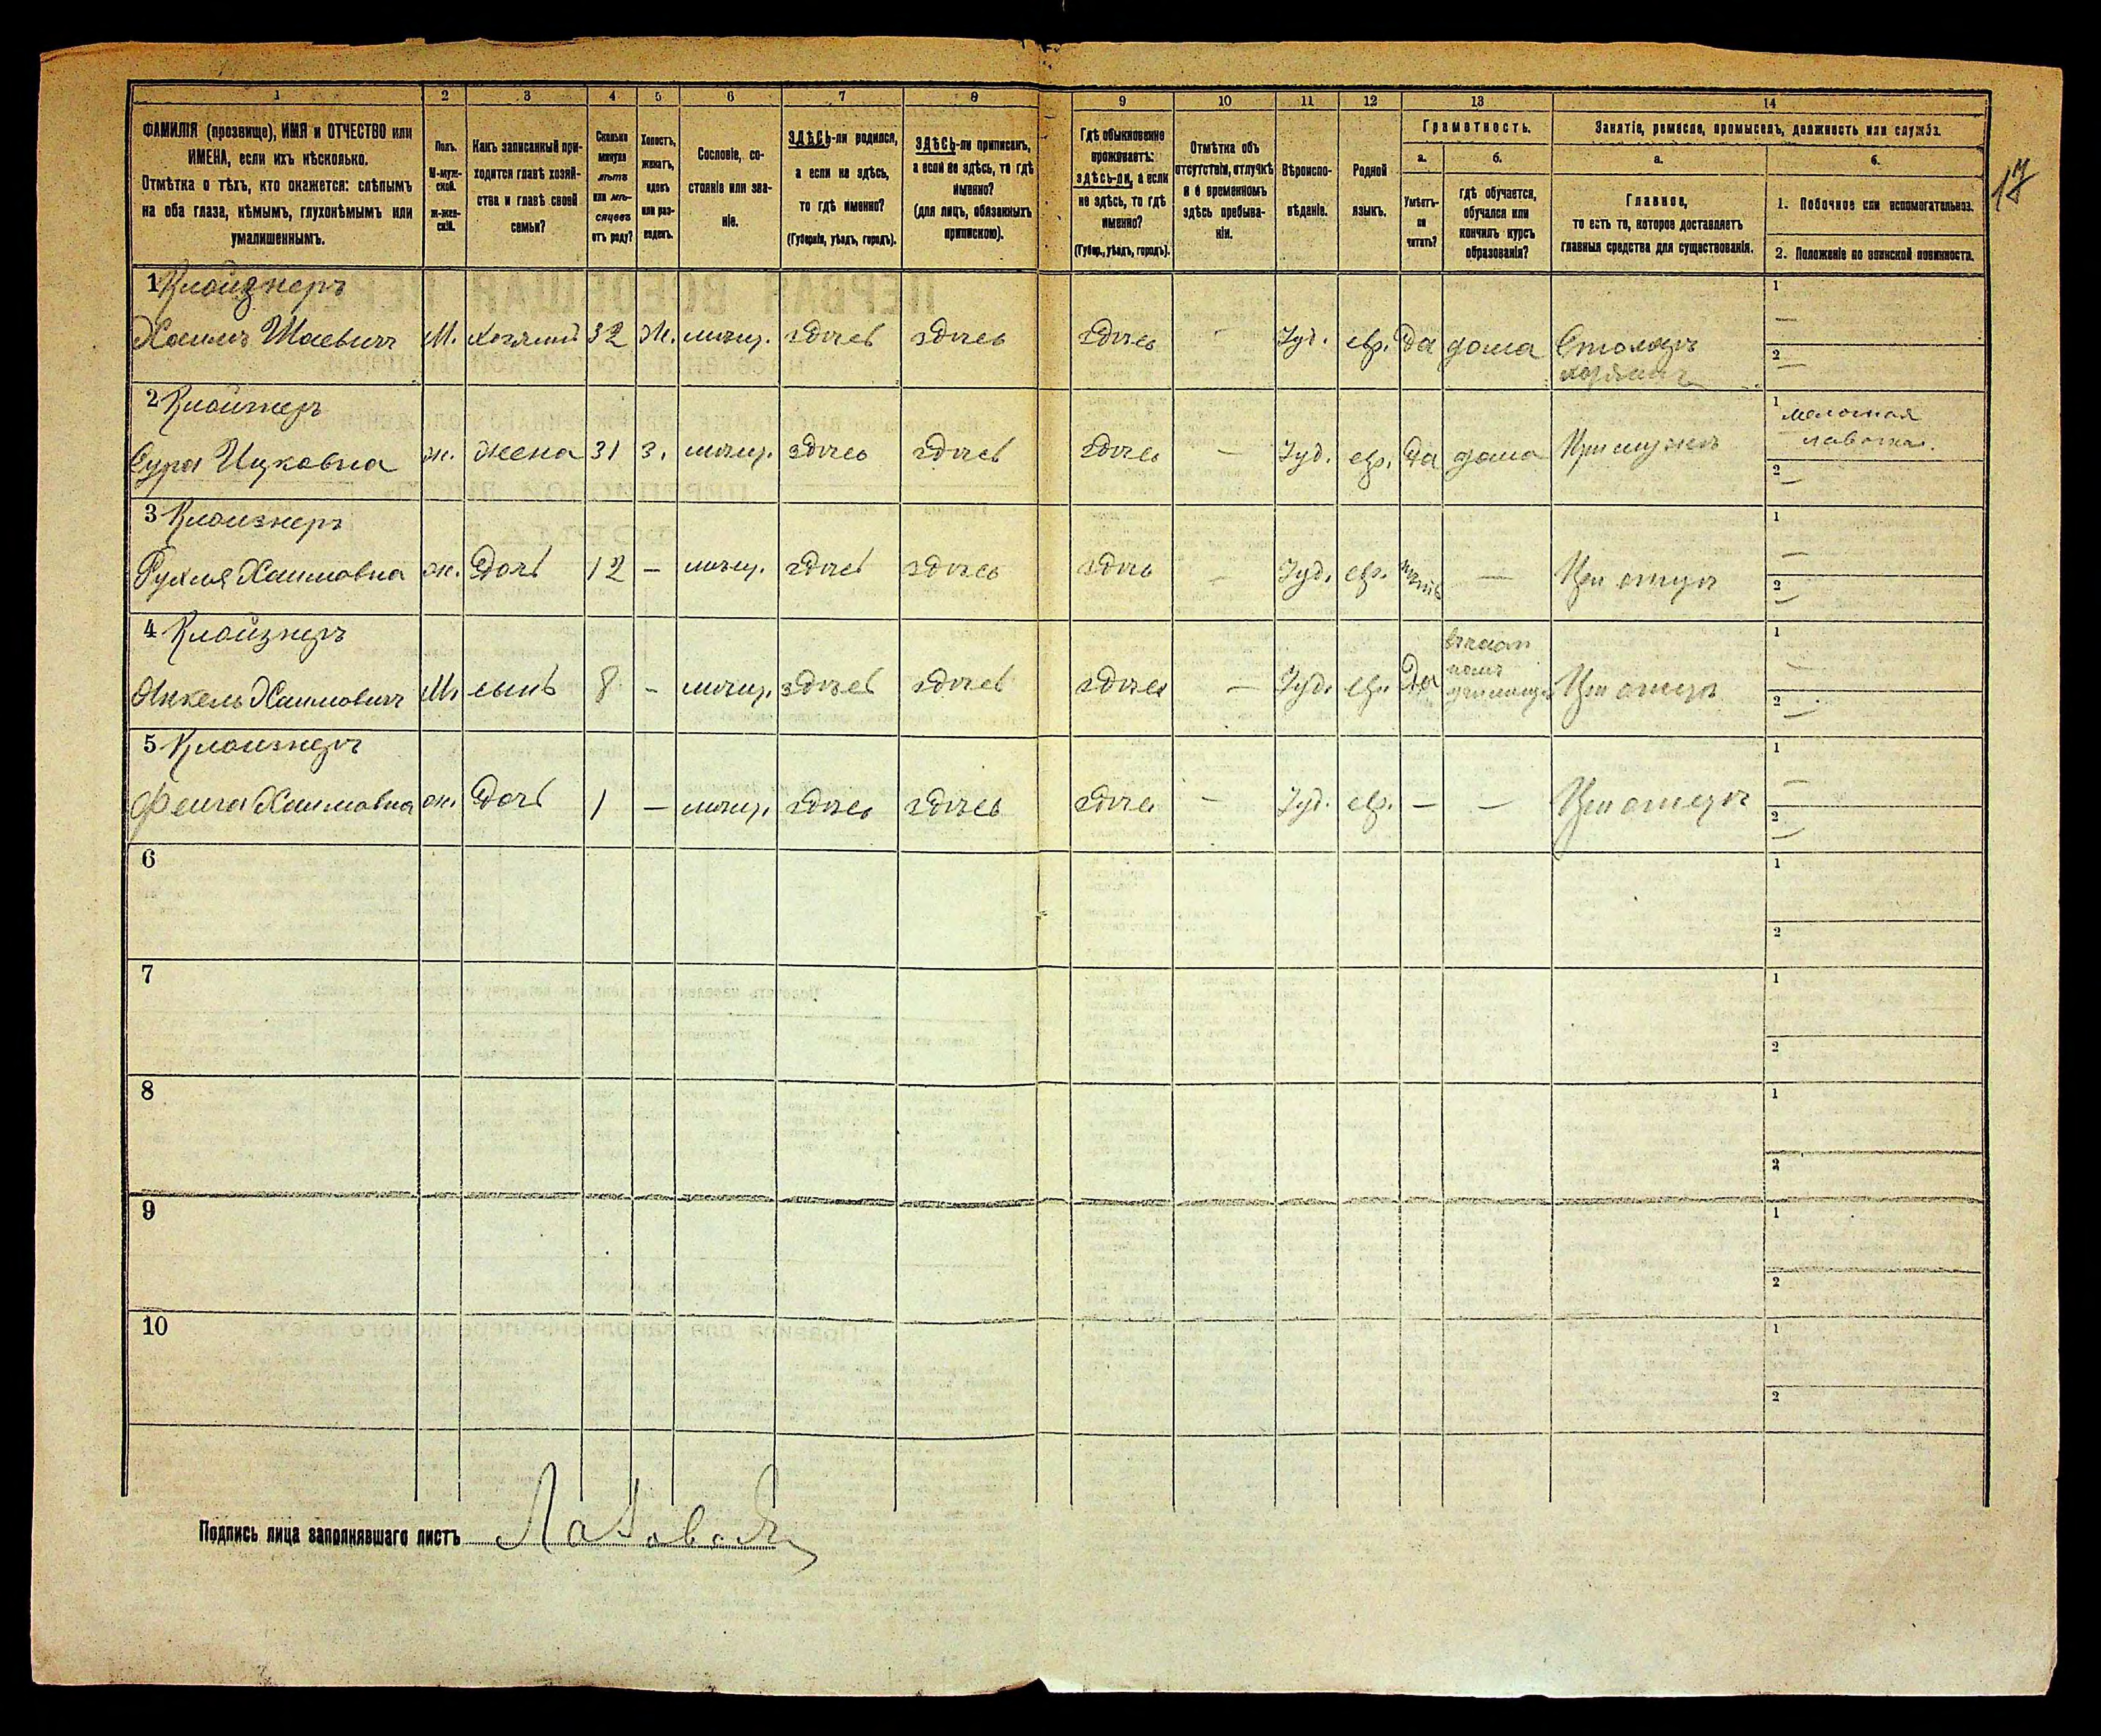 1 2 3 4 5 6 7 8 9 10 11 12 13 14
ФАМИЛІЯ (прозвище), ИМЯ и ОТЧЕСТВО или
ИМЕНА, если ихъ нѣсколько.
Отмѣтка о тѣхъ, кто окажется: слѣпымъ
на оба глаза, нѣмымъ, глухонѣмымъ или
умалишеннымъ.
Полъ.
М-муж-
ской.
ж-жен-
скій.
Какъ записанный при-
ходится главѣ хозяй-
ства и главѣ своей
семьи?
Сколько
минуло
лѣтъ
или мѣ-
сяцевъ
отъ роду?
Холостъ,
женатъ,
вдовъ
или раз-
веденъ.
Сословіе, со-
стояніе или зва-
ніе.
ЗДѢСЬ-ли родился,
а если не здѣсь,
то гдѣ именно?
(Губернія, уѣздъ, городъ).
ЗДѢСЬ-ли приписанъ,
а если не здѣсь, то гдѣ
именно?
(для лицъ, обязанныхъ
припискою).
Гдѣ обыкновенно
проживаетъ:
здѣсь-ли, а если
не здѣсь, то гдѣ
именно?
(Губер., уѣздъ, городъ).
Отмѣтка объ
отсутствіи, отлучкѣ
и о временномъ
здѣсь пребыва-
ніи.
Вѣроиспо-
вѣданіе.
Родной
языкъ.
Грамотность.
а.
б.
Умѣетъ-
ли
читать?
гдѣ обучается,
обучался или
кончилъ курсъ
образованія?
Занятіе, ремесло, промыселъ, должность или служба.
а.
б.
Главное,
то есть то, которое доставляетъ
главныя средства для существованія.
1. Побочное или вспомогательное.
2. Положеніе по воинской повинности.
17
1 Клойзнеръ
Хаимъ Шаевичъ М. хозяинъ 32 Ж. мѣщ. здѣсь здѣсь здѣсь - Іуд. евр. Да дома Столяръ
хозяинъ
1 —
2 —
2 Клойзнеръ
Сура Ицковна ж. жена 31 З. мѣщ. здѣсь здѣсь здѣсь — Іуд. евр. Да дома При мужѣ
1 мелочная
лавочка.
2 —
3 Клойзнеръ
Рухля Хаимовна ж. Дочь 12 — мѣщ. здѣсь здѣсь здѣсь — Іуд. евр. нѣтъ — При отцѣ
1 —
2 —
4 Клойзнеръ
Янкель Хаимовичъ М. сынъ 8 - мѣщ. здѣсь здѣсь здѣсь — Іуд. евр. Да въ част
номъ
училищѣ При отцѣ
1 —
2 —
5 Клойзнеръ
Фейга Хаимовна ж. Дочь 1 — мѣщ. здѣсь здѣсь здѣсь — Іуд. евр. — — При отцѣ
1 —
2 —
6 1
2
7 1
2
8 1
2
9 1
2
10 1
2
Подпись лица заполнявшаго листъ